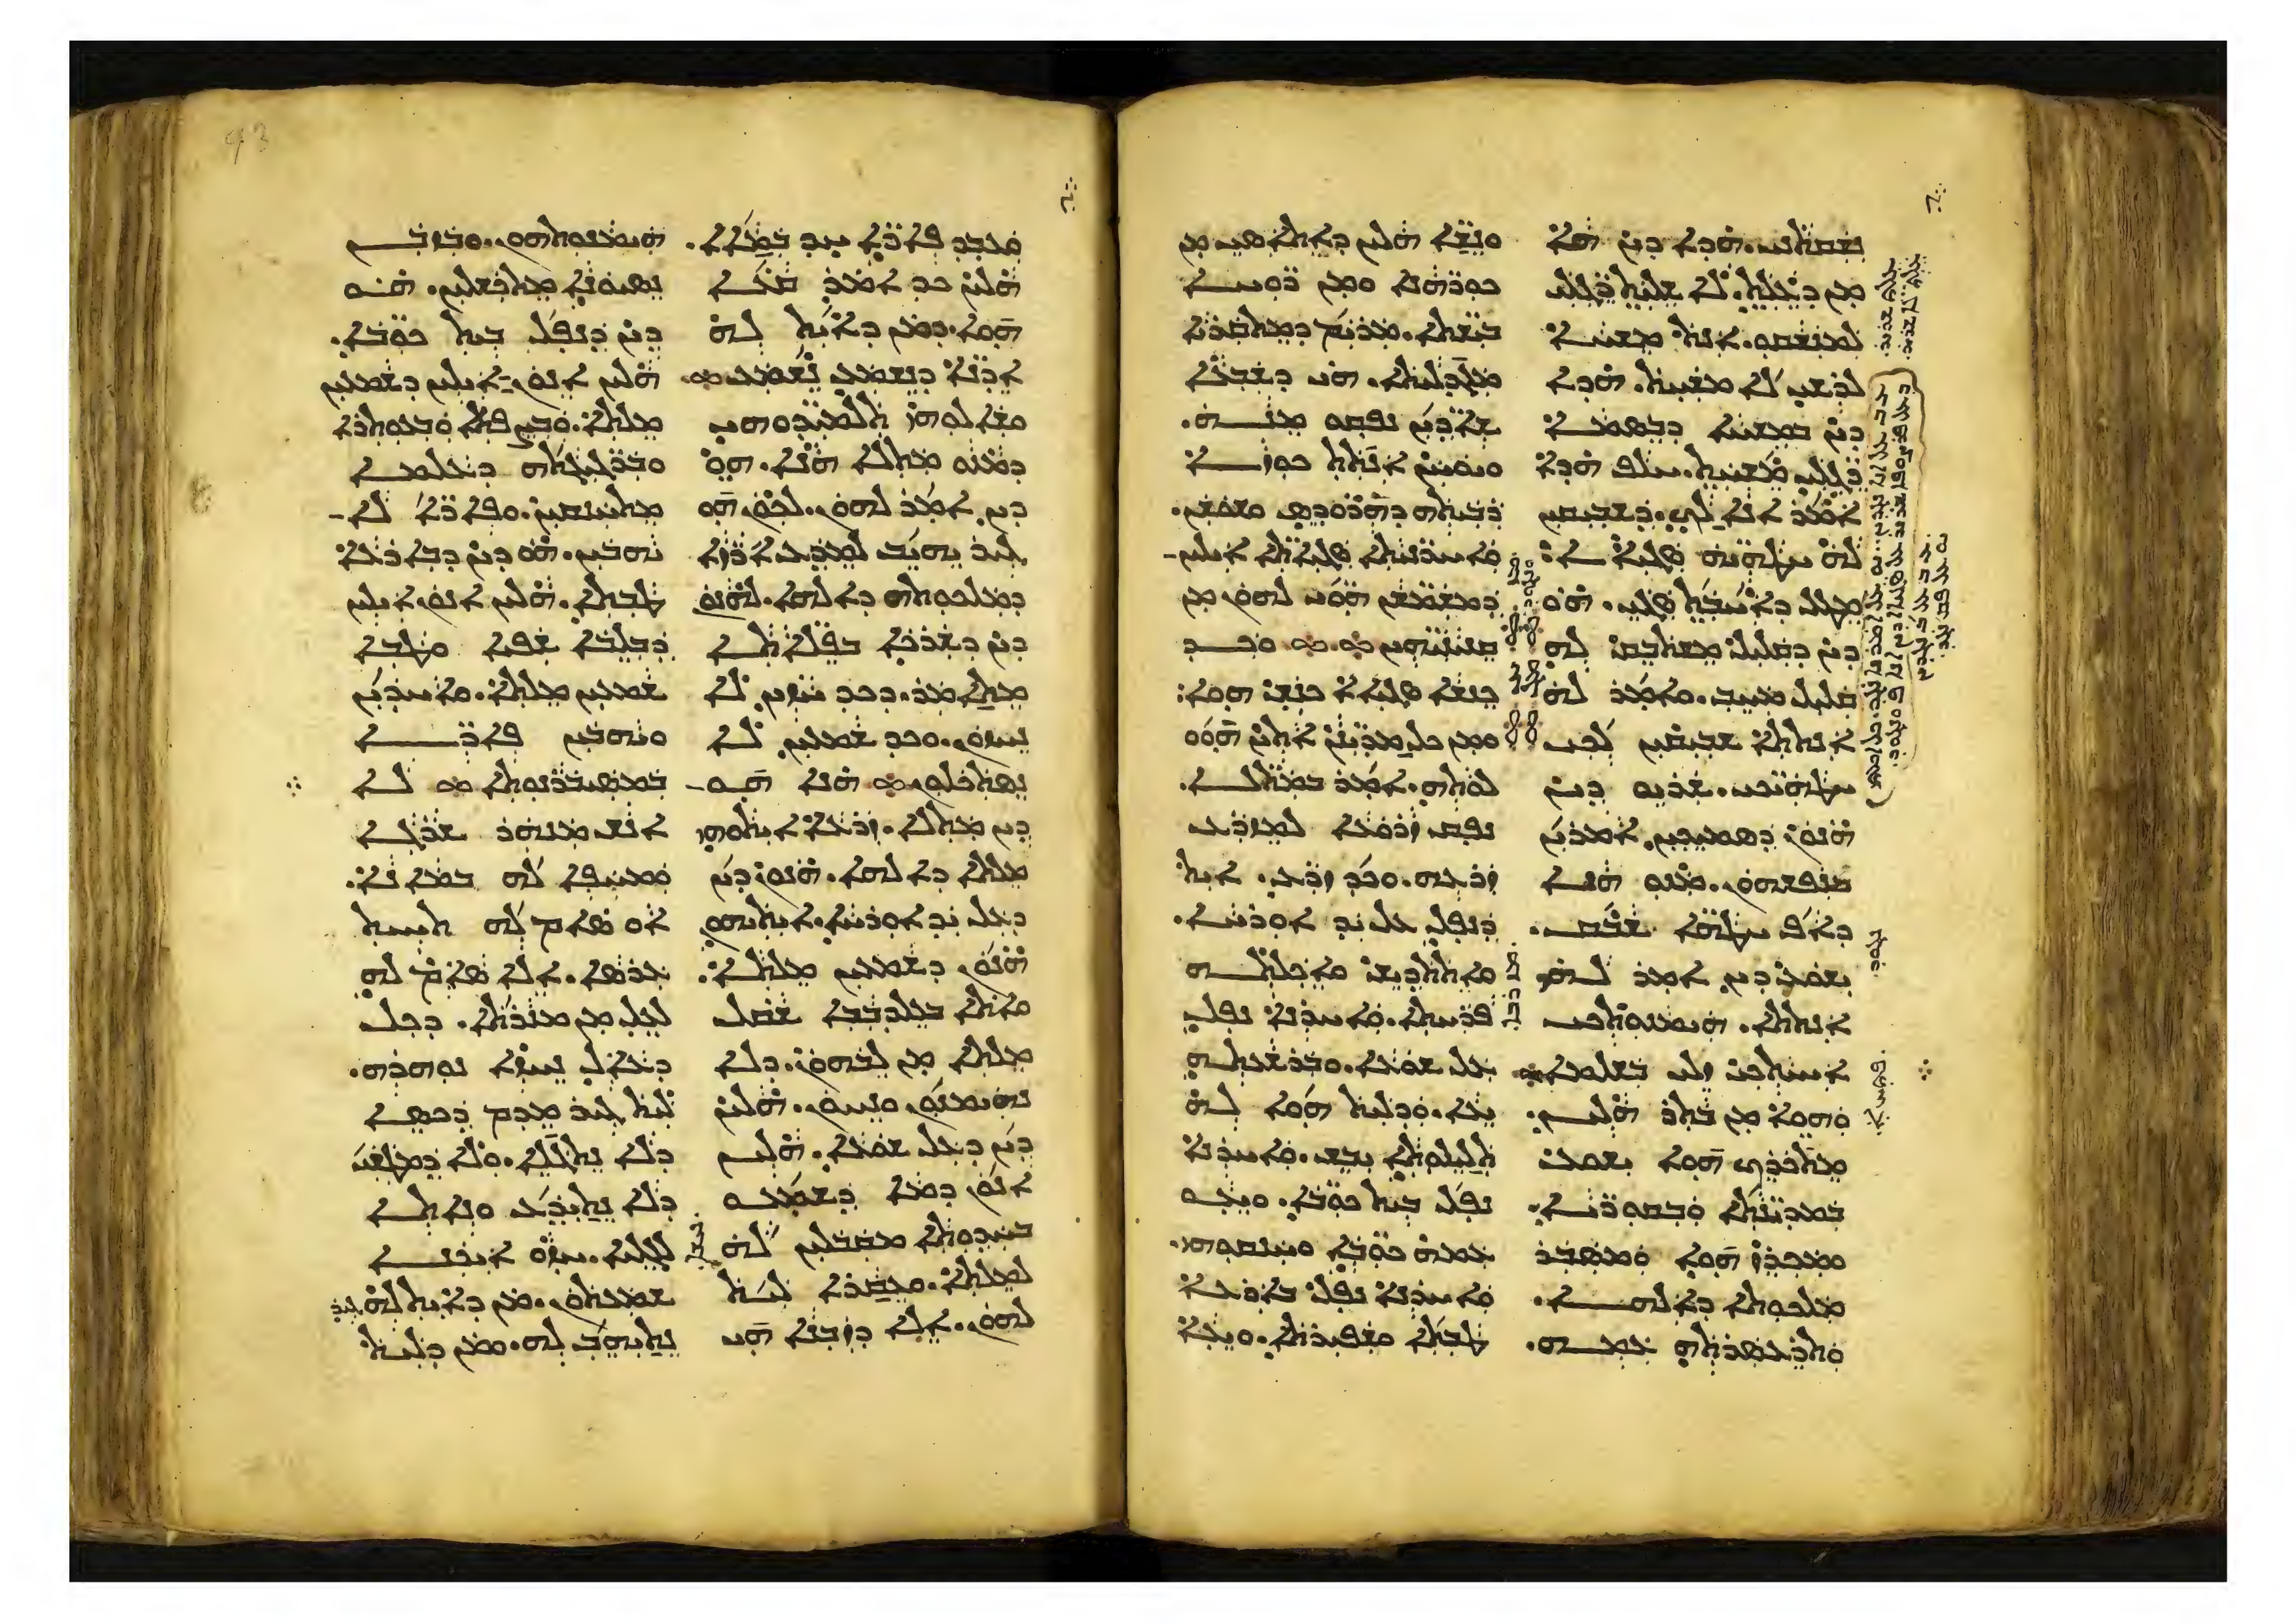 ܢܫܩܬܢܝ. ܗܕܐ ܕܝܢ ܗܐ
ܡܢ ܕܥܠܬ. ܠܐ ܫܠܝܬ ܪ̈ܓܠܝ
ܠܡܢܫܩܘ. ܐܢܬ ܡܫܚܐ
ܠܪܫܝ ܠܐ ܡܫܚܬ. ܗܕܐ
ܕܝܢ ܒܡܫܚܐ ܕܒܣܡܐ
ܪ̈ܓܠܝ ܡܫܚܬ. ܚܠܦ ܗܕܐ
ܐܡܪ ܐܢܐ ܠܟ. ܕܫܒܝܩܝܢ
ܠܗ ܚܛܗ̈ܝܗ ܣܓܝ̈ܐܐ
ܡܛܠ ܕܐܚܒܬ ܣܓܝ. ܗܘ
ܕܝܢ ܕܩܠܝܠ ܡܫܬܒܩ ܠܗ
ܩܠܝܠ ܡܚܒ. ܘܐܡܪ ܠܗ
ܐܢܬܬܐ ܫܒܝܩܝܢ ܠܟܝ
ܚܛܗ̈ܝܟܝ. ܫܪܝܘ ܕܝܢ
ܗܢܘܢ ܕܣܡܝܟܝܢ ܐܡܪܝܢ
ܒܢܦܫܗܘܢ. ܡܢܘ ܗܢܐ
ܕܐܦ ܚܛܗ̈ܐ ܫܒܩ.
ܝܫܘܥ ܕܝܢ ܐܡܪ ܠܗ
ܐܢܬܬܐ. ܗܝܡܢܘܬܟܝ
ܐܚܝܬܟܝ ܙܠܝ ܒܫܠܡܐ
ܘܗܘܐ ܡܢ ܒܬܪ ܗܠܝܢ.
ܡܬܟܪܟ ܗܘܐ ܝܫܘܥ
ܒܡܕܝ̈ܢܬܐ ܘܒܩܘܪ̈ܝܐ.
ܘܡܟܪܙ ܗܘܐ ܘܡܣܒܪ
ܡܠܟܘܬܐ ܕܐܠܗܐ.
ܘܬܪܥܣܪܬܗ ܥܡܗ.
ܘܢܫ̈ܐ ܗܠܝܢ ܕܐܬܐܣܝ ܡܢ
ܟܘܪ̈ܗܢܐ ܘܡܢ ܪ̈ܘܚܐ
ܒܝ̈ܫܬܐ. ܡܪܝܡ ܕܡܬܩܪܝܐ
ܡܓܕܠܝܬܐ. ܗܝ ܕܫܒܥܐ
ܫܐܕ̈ܝܢ ܢܦܩܘ ܡܢܗ.
ܘܝܘܚܢ ܐܢܬܬ ܟܘܙܐ
ܪܒܝܬܗ ܕܗܪܘܕܣ ܘܫܘܫܢ.
ܘܐܚܪ̈ܢܝܬܐ ܣܓܝ̈ܐܬܐ ܐܝܠܝܢ
ܕܡܫܡܫܢ ܗܘ̈ܝ ܠܗܘܢ ܡܢ
ܩܢܝܢܝܗܝܢ ܘܟܕ
ܟܢܫܐ ܣܓܝܐܐ ܟܢܝܫ ܗܘܐ.
ܘܡܢ ܟܠ ܡܕܝ̈ܢܢ ܐܬܝܢ ܗܘܘ
ܠܘܬܗ. ܐܡܪ ܒܡ̈ܬܠܐ.
ܢܦܩ ܙܪܘܥܐ ܠܡܙܪܥ
ܙܪܥܗ. ܘܟܕ ܙܪܥ. ܐܝܬ
ܕܢܦܠ ܥܠ ܝܕ ܐܘܪܚܐ.
ܘܐܬܬܕܝܫ ܘܐܟܠܬܗ
ܦܪܚܬܐ. ܘܐܚܪܢܐ ܢܦܠ
ܥܠ ܫܘܥܐ. ܘܒܪܫܥܬܗ
ܝܥܐ. ܘܕܠܝܬ ܗܘܐ ܠܗ
ܬܠܝܠܘܬܐ ܝܒܫ. ܘܐܚܪܢܐ
ܢܦܠ ܒܝܬ ܟܘ̈ܒܐ. ܘܝܥܘ
ܥܡܗ ܟܘ̈ܒܐ ܘܚܢܩܘܗܝ.
ܘܐܚܪܢܐ ܢܦܠ ܒܐܪܥܐ
ܛܒܬܐ ܘܫܦܝܪܬܐ. ܘܝܥܐ
ܘܥܒܕ ܦܐܪ̈ܐ ܚܕ ܒܡܐܐ.
ܗܠܝܢ ܟܕ ܐܡܪ ܩܥܐ
ܗܘܐ. ܕܡܢ ܕܐܝܬ ܠܗ
ܐܕܢ̈ܐ ܕܢܫܡܥ ܢܫܡܥ
ܘܫܐܠܘܗܝ ܬܠܡܝܕ̈ܘܗܝ
ܕܡܢܘ ܡܬܠܐ ܗܢܐ. ܗܘ
ܕܝܢ ܐܡܪ ܠܗܘܢ. ܠܟܘܢ ܗܘ
ܝܗܝܒ ܠܡܕܥ ܐܪܙܐ
ܕܡܠܟܘܬܗ ܕܐܠܗܐ. ܠܗܢܘܢ
ܕܝܢ ܕܫܪܟܐ ܒܦ̈ܠܐܬܐ
ܡܬܐܡܪ. ܕܟܕ ܚܙܝܢ ܠܐ
ܢܚܙܘܢ. ܘܟܕ ܫܡܥܝܢ ܠܐ
ܢܣܬܟܠܘܢ ܗܢܐ ܗܘ
ܕܝܢ ܡܬܠܐ. ܙܪܥܐ ܐܝܬܘܗܝ
ܡܠܬܐ ܕܐܠܗܐ. ܗܢܘܢ ܕܝܢ
ܕܥܠ ܝܕ ܐܘܪܚܐ. ܐܝܬܝܗܘܢ
ܗܢܘܢ ܕܫܡܥܝܢ ܡܠܬܐ.
ܘܐܬܐ ܒܥܠܕܒܒܐ ܫܩܠ
ܡܠܬܐ ܡܢ ܠܒܗܘܢ. ܕܠܐ
ܢܗܝܡܢܘܢ ܘܢܚܘܢ. ܗܠܝܢ
ܕܝܢ ܕܥܠ ܫܘܥܐ. ܗܠܝܢ
ܐܢܘܢ ܕܡܐ ܕܫܡܥܘ
ܒܚܕܘܬܐ ܡܩܒܠܝܢ ܠܗ
ܠܡܠܬܐ. ܘܥܩܪܐ ܠܝܬ
ܠܗܘܢ. ܐܠܐ ܕܙܒܢܐ ܗܝ
ܗܝܡܢܘܬܗܘܢ. ܘܒܙܒܢ
ܢܣܝܘܢܐ ܡܬܟܫܠܝܢ. ܗܘ
ܕܝܢ ܕܢܦܠ ܒܝܬ ܟܘ̈ܒܐ.
ܗܠܝܢ ܐܢܘܢ ܐܝܠܝܢ ܕܫܡܥܝܢ
ܡܠܬܐ. ܘܒܨܦܬܐ ܘܒܥܘܬܪܐ
ܘܒܪ̈ܓܝܓܬܗ ܕܥܠܡܐ
ܡܬܚܢܩܝܢ. ܘܦܐܪ̈ܐ ܠܐ
ܝܗܒܝܢ. ܗܘ ܕܝܢ ܕܒܐܪܥܐ
ܛܒܬܐ. ܗܠܝܢ ܐܢܘܢ ܐܝܠܝܢ
ܕܒܠܒܐ ܫܦܝܐ ܘܛܒܐ
ܫܡܥܝܢ ܡܠܬܐ. ܘܐܚܕܝܢ
ܘܝܗܒܝܢ ܦܐܪ̈ܐ
ܒܡܣܝܒܪܢܘܬܐ ܠܐ
ܐܢܫ ܡܢܗܪ ܫܪܓܐ
ܘܡܚܦܐ ܠܗ ܒܡܐܢܐ.
ܐܘ ܣܐܡ ܠܗ ܬܚܝܬ
ܥܪܣܐ. ܐܠܐ ܣܐܡ ܠܗ
ܠܥܠ ܡܢ ܡܢܪܬܐ. ܕܟܠ
ܕܥܐܠ ܢܚܙܐ ܢܘܗܪܗ.
ܠܝܬ ܓܝܪ ܡܕܡ ܕܟܣܐ
ܕܠܐ ܢܬܓܠܐ. ܘܠܐ ܕܡܛܫܝ
ܕܠܐ ܢܬܝܕܥ ܘܢܐܬܐ
ܠܓܠܝܐ. ܚܙܘ ܐܝܟܢܐ
ܫܡܥܬܘܢ. ܡܢ ܕܐܝܬ ܠܗ ܓܝܪ
ܢܬܝܗܒ ܠܗ. ܘܡܢ ܕܠܝܬ